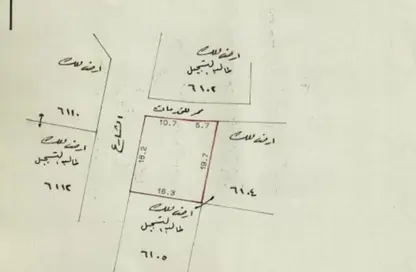 ارض ملك
طالب التسجيل
٦١٠٢
ارض ملك
٦١١٠
الشارع
ممر للخدمات
10.7
5.7
ارض ملك
طالب التسجيل
٦١١٢
18.2
19.7
ارض ملك
٦١٠٤
16.3
ارض ملك
طالب التسجيل
٦١٠٥